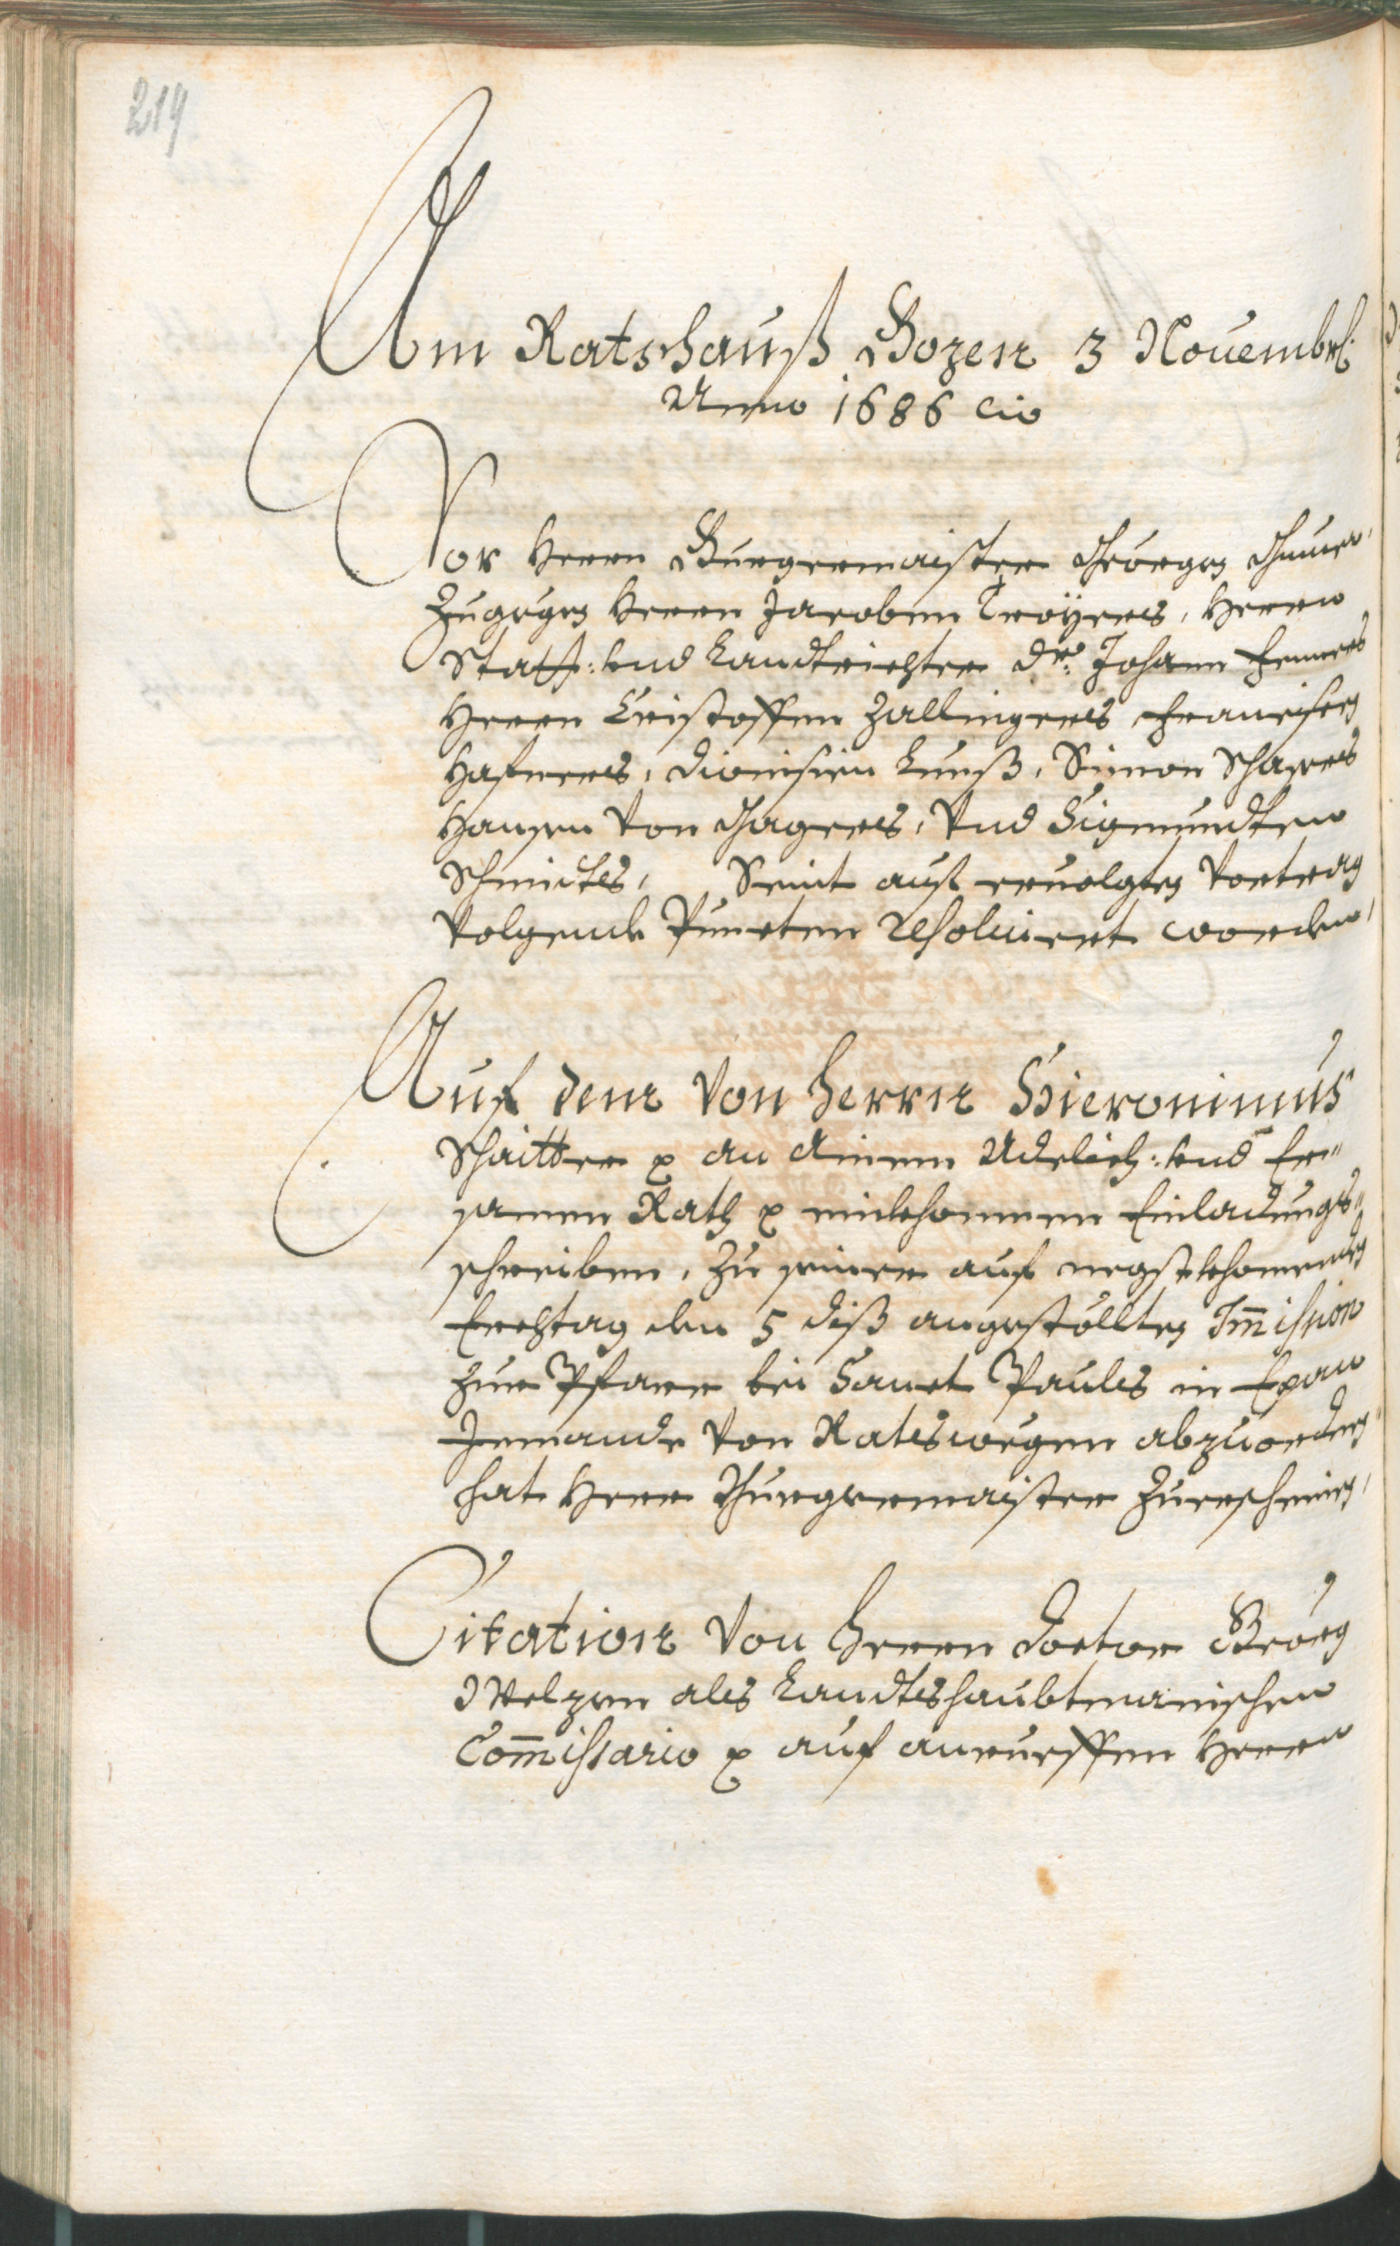 219
Am Ratshauß Bozen 3 Nouembr:
Anno 1686 etc
Vor Herrn Burgermaister Georgen
Zugegen Herrn Jacoben Troyers, Herrn
Statt: vnd Landtrichter Dr: Johann
Herrn Cristoffen Zallingers Francisen
Hafners, Dionisien Kunß, Simon
Hansen von Jagers, vnd Sigmundten
Schmidts, Seint auf eruolgten Vortrag
volgende Puncten resoluiert worden,
Auf dem von Herrn Hieronimus
an ainem Adelich: vnd Er-
samen Rath einkhommen Einladungs-
schreiben, zu seiner auf negstkhomenden
Erchtag den 5 diß angestöllten Im̄ission
zur Pfarr bei Sanct Pauls in Eppan
Jemande von Ratswegen abzuordnen
hat Herr Burgermaister zuerscheinen,
Citation von Herrn Doctor Georg
als Landtshaubtmanischen
Com̄issario auf anrueffen Herrn